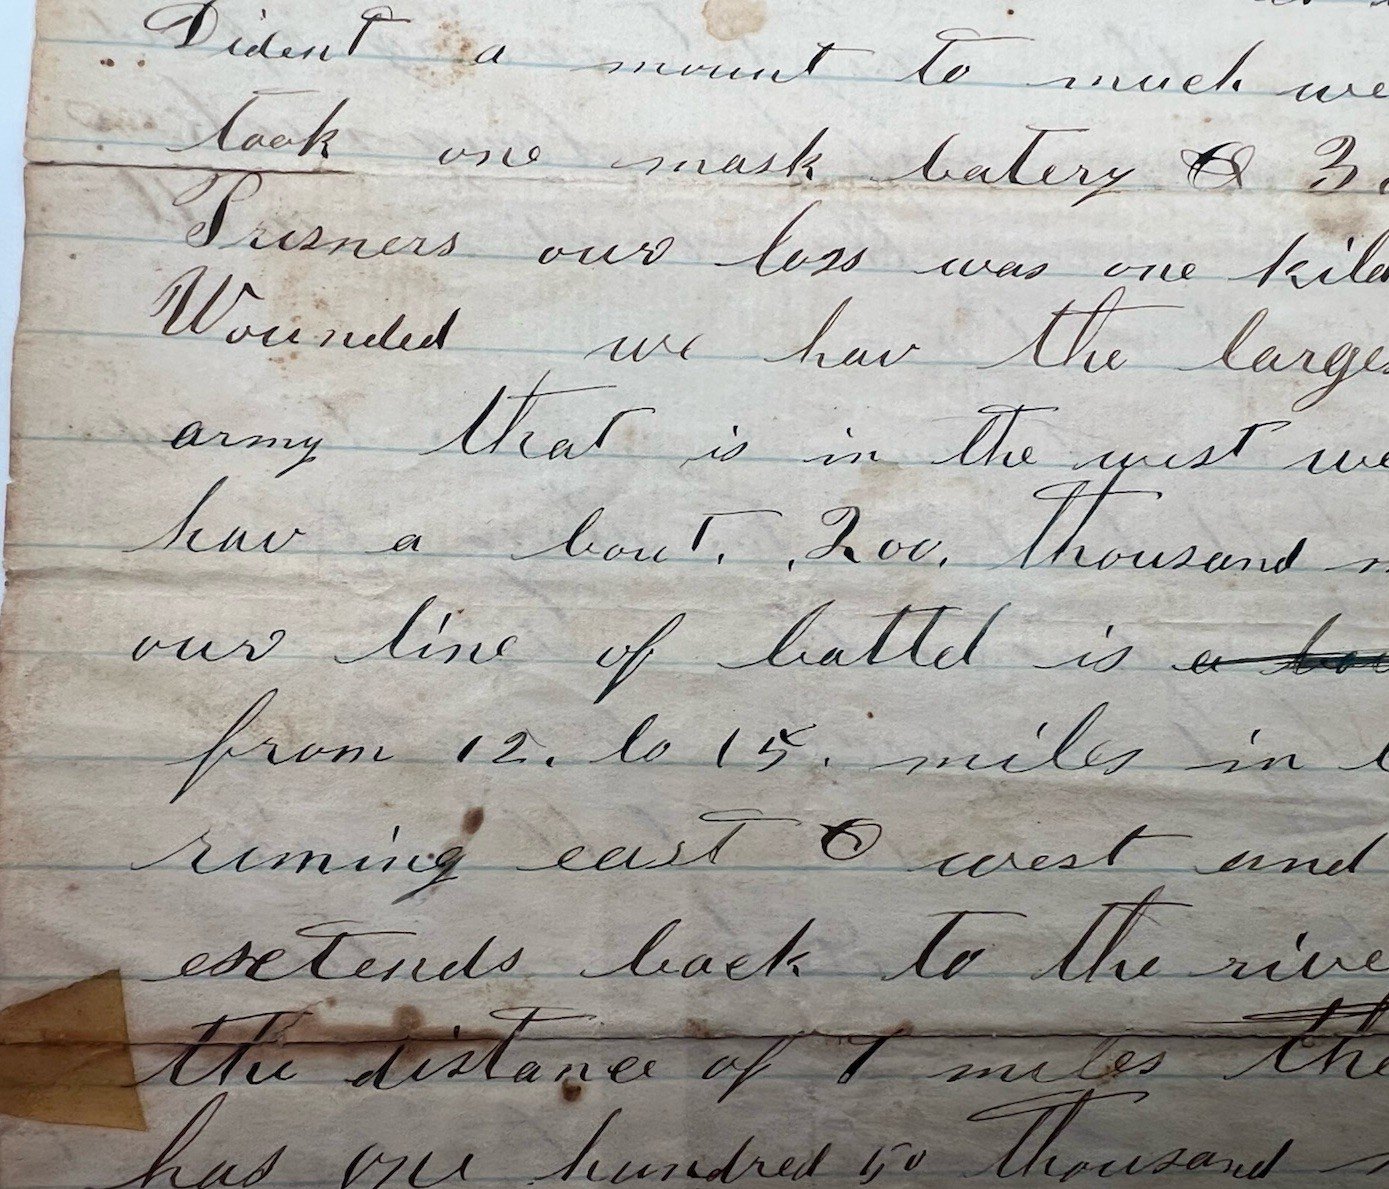 Dident a mount to much we
took one mask batery & 3
Prisners our loss was one kild
Wounded we hav the larges
army that is in the west we
hav a bout. .200. thousand
our line of battel is a bou
from 12. to 15. miles in
runing east & west and
extends back to the rive
the distance of 7 miles the
has one hundred 50 thousand